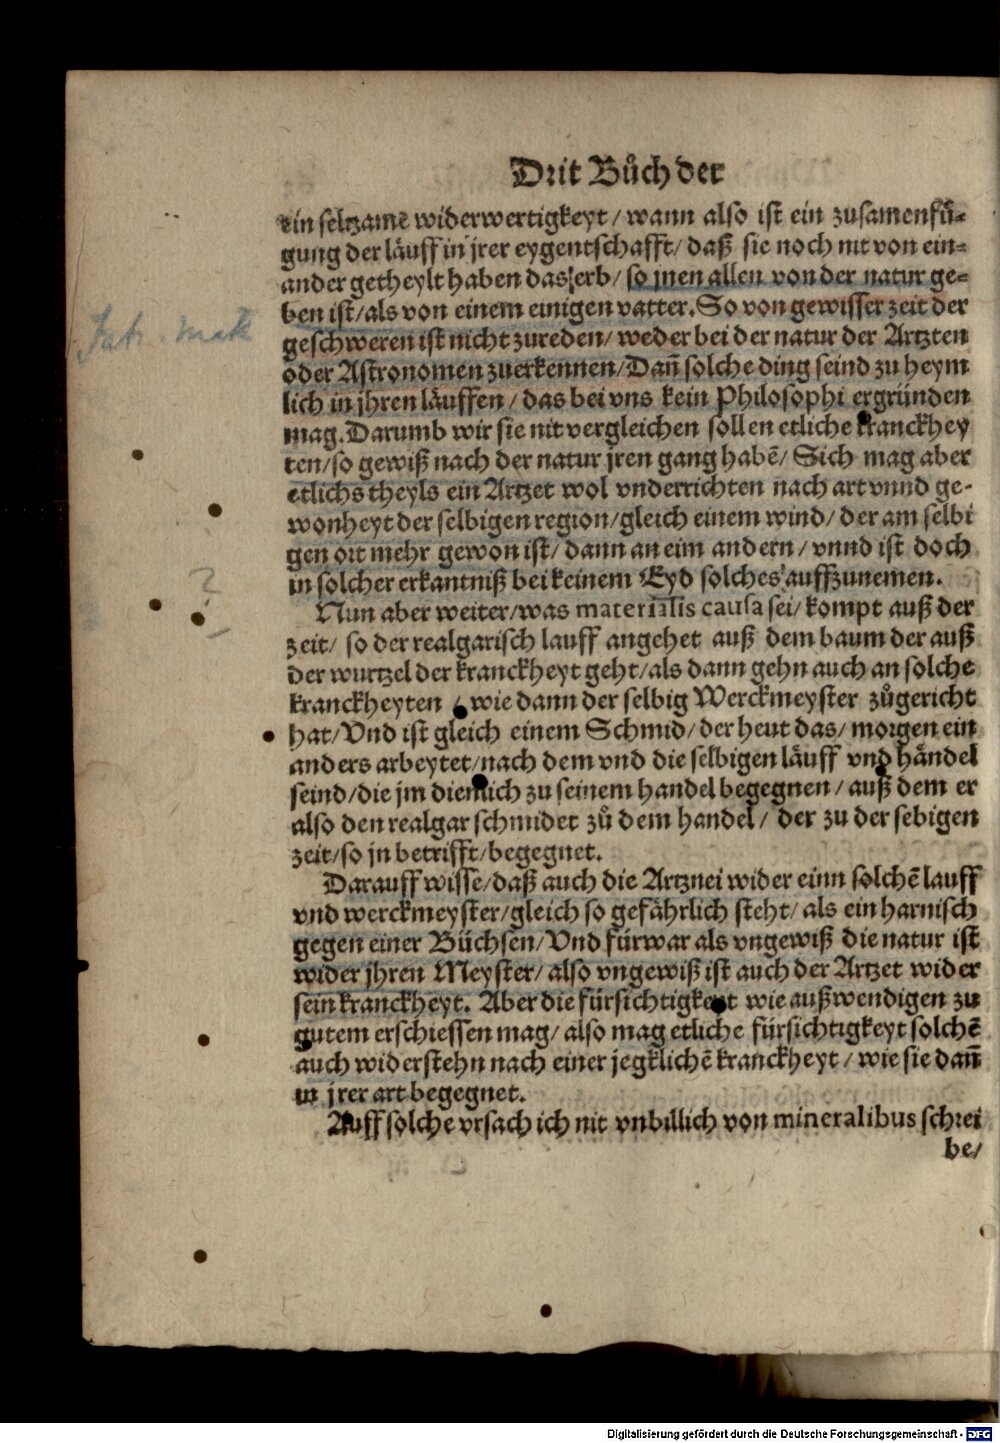 Drit Bůch der
ein seltzamē widerwertigkeyt / wann also ist ein zusamenfů-
gung der läuff in jrer eygentschafft / daß sie noch nit von ein-
ander getheylt haben das erb / so jnen allen von der natur ge-
ben ist / als von einem einigen vatter. So von gewisser zeit der
geschweren ist nicht zureden / weder bei der natur der Artzten
oder Astronomen zuerkennen / Dañ solche ding seind zu heym
lich in jhren läuffen / das bei vns kein Philosophi ergründen
mag. Darumb wir sie nit vergleichen sollen etliche kranckhey
ten / so gewiß nach der natur jren gang habē / Sich mag aber
etlichs theyls ein Artzet wol vnderrichten nach art vnnd ge-
wonheyt der selbigen region / gleich einem wind / der am selbi
gen ort mehr gewon ist / dann an eim andern / vnnd ist doch
in solcher erkantniß bei keinem Eyd solches auffzunemen.
Nun aber weiter / was materialis causa sei / kompt auß der
zeit / so der realgarisch lauff angehet auß dem baum der auß
der wurtzel der kranckheyt geht / als dann gehn auch an solche
kranckheyten / wie dann der selbig Werckmeyster zůgericht
hat / Vnd ist gleich einem Schmid / der heut das / morgen ein
anders arbeytet / nach dem vnd die selbigen läuff vnd händel
seind / die jm diemlich zu seinem handel begegnen / auß dem er
also den realgar schmidet zů dem handel / der zu der sebigen
zeit / so jn betrifft / begegnet.
Darauff wisse / daß auch die Artznei wider einn solchē lauff
vnd werckmeyster / gleich so gefährlich steht / als ein harnisch
gegen einer Büchsen / Vnd fürwar als vngewiß die natur ist
wider jhren Meyster / also vngewiß ist auch der Artzet wider
sein kranckheyt. Aber die fürsichtigkeyt wie außwendigen zu
gutem erschiessen mag / also mag etliche fürsichtigkeyt solchē
auch widerstehn nach einer jegklichē kranckheyt / wie sie dañ
in jrer art begegnet.
Auff solche vrsach ich nit vnbillich von mineralibus schrei
be /
?
Digitalisierung gefördert durch die Deutsche Forschungsgemeinschaft - DFG